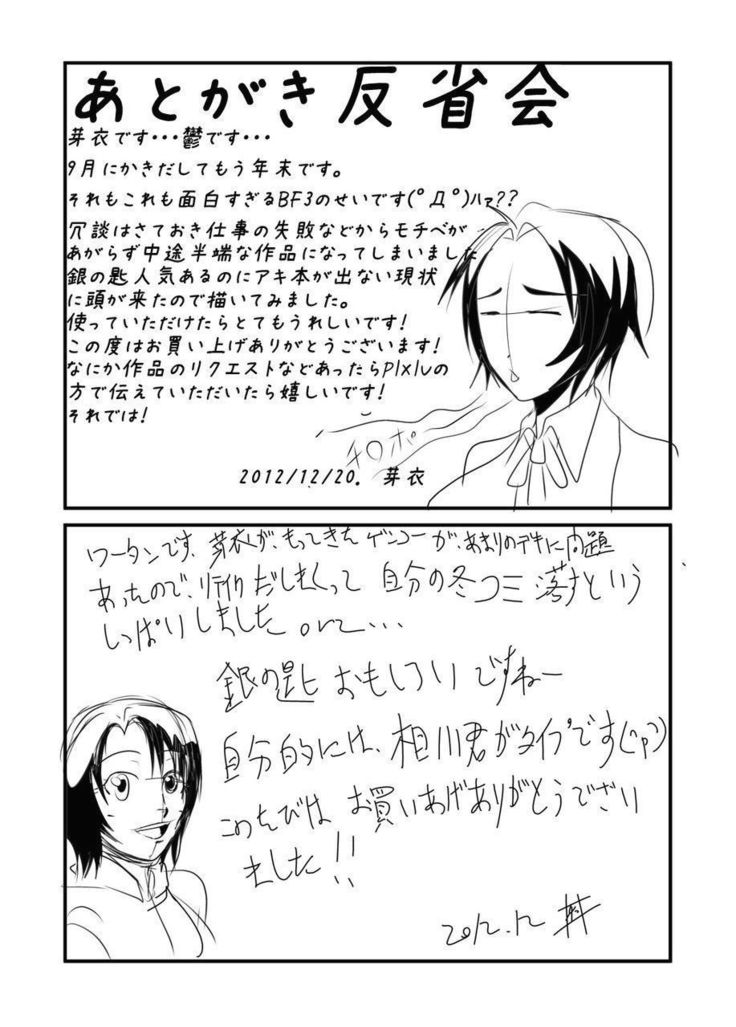 あとがき反省会
芽衣です･･･鬱です･･･
9月にかきだしてもう年末です。
それもこれも面白すぎるBF3のせいです(ﾟДﾟ)ﾊｧ??
冗談はさておき仕事の失敗などからモチベが
あがらず中途半端な作品になってしまいました
銀の匙人気あるのにアキ本が出ない現状
に頭が来たので描いてみました。
使っていただけたらとてもうれしいです!
この度はお買い上げありがとうございます!
なにか作品のリクエストなどあったらPixivの
方で伝えていただいたら嬉しいです!
それでは!
2012/12/20. 芽衣
ワータンです、芽衣が、もってきたゲンコーが、あまりのデキに問題
あったので、リテイクだしまくって 自分の冬コミ落すという
しっぱりしました orz...
銀の匙 おもしろいですねー
自分的には、相川君がタイプです
このたびは お買いあげありがとうござい
ました!!
2012.12